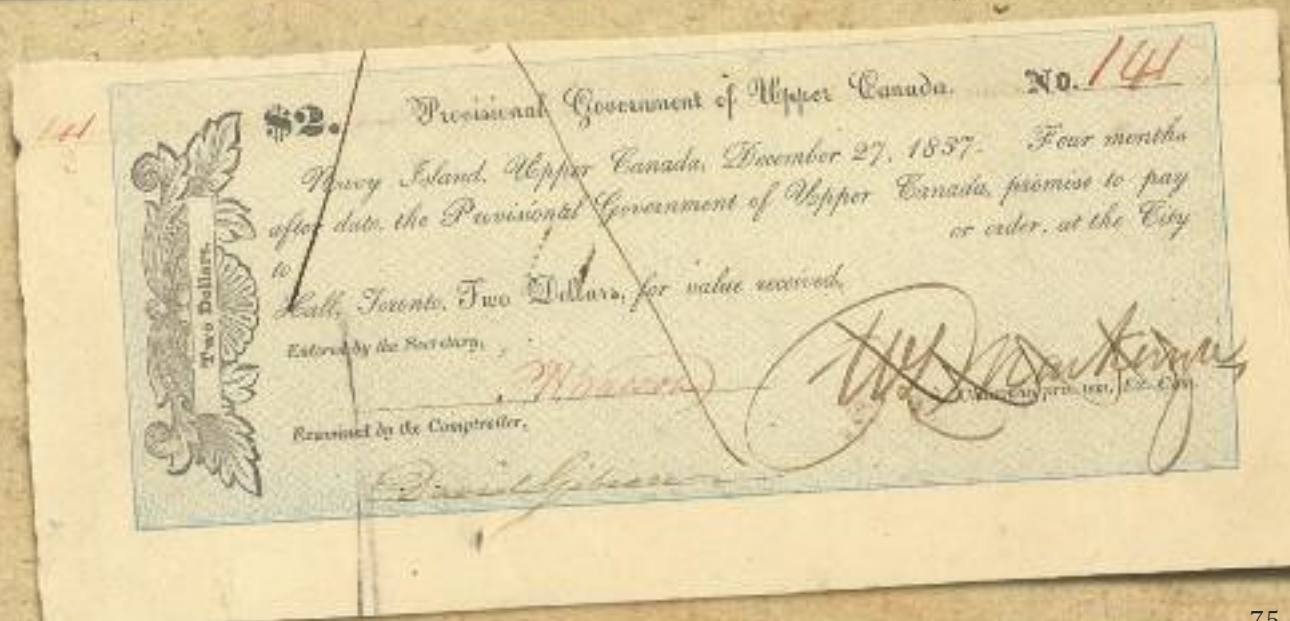 $2. Provisional Government of Upper Canada. No. 141
141
Navy Island, Upper Canada, December 27, 1837. Four months
after date, the Provisional Government of Upper Canada, promise to pay
to or order, at the City
Hall, Toronto, Two Dollars, for value received.
Two Dollars.
Entered by the Secretary,
Examined by the Comptroller,
David Gibson
75